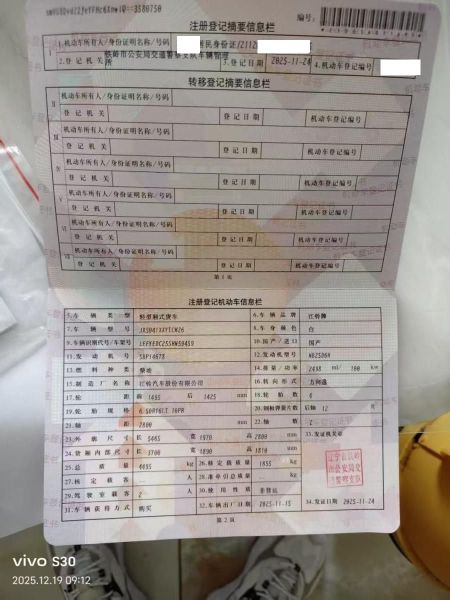 注册登记摘要信息栏
编号:
1.机动车所有人/身份证明名称/号码 居民身份证/2112
2.登记机关 铁岭市公安局交通警察支队车辆管理所 3.登记日期 2025-11-24 4.机动车登记编号
转移登记摘要信息栏
II 机动车所有人/身份证明名称/号码
登记机关 登记日期 机动车登记编号
III 机动车所有人/身份证明名称/号码
登记机关 登记日期 机动车登记编号
IV 机动车所有人/身份证明名称/号码
登记机关 登记日期 机动车登记编号
V 机动车所有人/身份证明名称/号码
登记机关 登记日期 机动车登记编号
VI 机动车所有人/身份证明名称/号码
登记机关 登记日期 机动车登记编号
VII 机动车所有人/身份证明名称/号码
登记机关 登记日期 机动车登记编号
第1页
注册登记机动车信息栏
5.车辆类型 轻型厢式货车 6.车辆品牌 江铃牌
7.车辆型号 8.车身颜色 白
9.车辆识别代号/车架号 10.国产/进口 国产
11.发动机号 12.发动机型号
13.燃料种类 柴油 14.排量/功率 ml/ kw
15.制造厂名称 江铃汽车股份有限公司 16.转向形式 方向盘
17.轮距 前 1495 后 1425 mm 18.轮胎数 6
19.轮胎规格 20.钢板弹簧片数 后轴 片
21.轴距 2800 mm 22.轴数 2
23.外廓尺寸 长 宽 1970 高 mm 33.发证机关章
24.货厢内部尺寸 长 3700 宽 1890 高 1810 mm
25.总质量 4495 kg 26.核定载质量 kg
27.核定载客 人 28.准牵引总质量 kg
29.驾驶室载客 2 人 30.使用性质 非营运
31.车辆获得方式 购买 32.车辆出厂日期 2025-11-15 34.发证日期 2025-11-24
第2页
vivo S30
2025.12.19 09:12